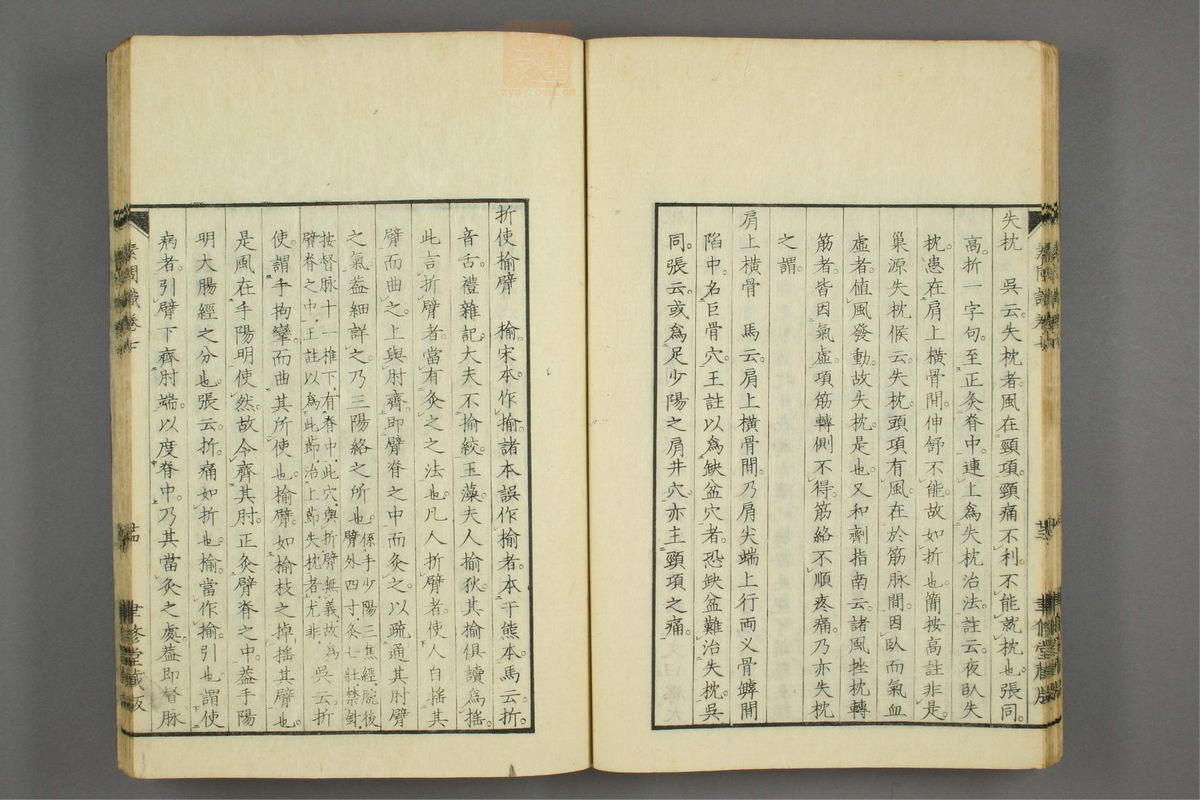 失枕　吳云失枕者風在頸項頸痛不利不能就枕也張同
高折一字句至正灸脊中連上為失枕治法註云夜臥失
枕患在肩上橫骨間伸舒不能故如折也簡按高註非是
巢源失枕候云失枕頭項有風在於筋脉間因臥而氣血
虛者值風發動故失枕是也又和劑指南云諸風挫枕轉
筋者皆因氣虛項筋轉側不得筋絡不順疼痛乃亦失枕
之謂
肩上橫骨　馬云肩上橫骨間乃肩尖端上行兩叉骨罅間
陷中名巨骨穴王註以為缺盆穴者恐缺盆難治失枕吳
同張云或為足少陽之肩井穴亦主頸項之痛
素問識卷七
聿修堂藏版
折使揄臂　揄宋本作揄諸本誤作榆者本于熊本馬云折
音舌禮雜記大夫不揄絞玉藻夫人揄狄其揄俱讀為搖
此言折臂者當有灸之之法也凡人折臂者使人自搖其
臂而曲之上與肘齊即臂脊之中而灸之以疏通其肘臂
之氣葢細詳之乃三陽絡之所也係手少陽三焦經腕後
臂外四寸灸七壯禁鍼
按督脉十一椎下有脊中此穴與折臂無義故為
臂脊之中王註以為此節治上節失枕者尤非　吳云折
使謂手拘攣而曲其所使也揄臂如揄枝之掉搖其臂也
是風在手陽明使然故令齊其肘正灸臂脊之中葢手陽
明大腸經之分也張云折痛如折也揄當作揄引也謂使
病者引臂下齊肘端以度脊中乃其當灸之處葢即督脉
素問識卷七
聿修堂藏版